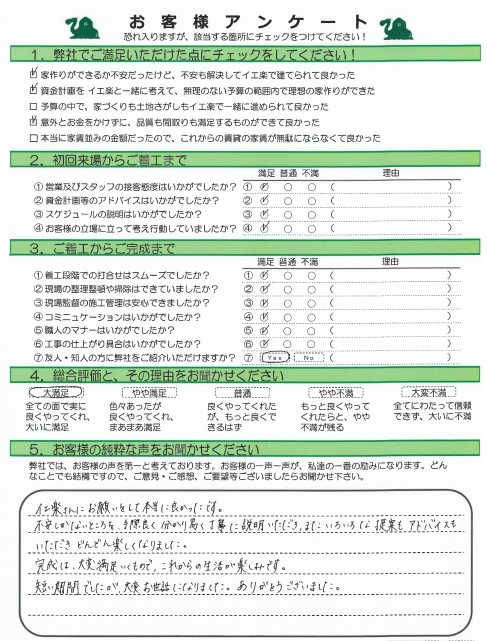 お客様アンケート
恐れ入りますが、該当する箇所にチェックをつけてください！
1．弊社でご満足いただけた点にチェックをしてください！
家作りができるか不安だったけど、不安も解決してイエ楽で建てられて良かった
資金計画を イエ楽と一緒に考えて、無理のない予算の範囲内で理想の家作りができた
予算の中で、家づくりも土地さがしもイエ楽で一緒に進められて良かった
意外とお金をかけずに、品質も間取りも満足するものができて良かった
本当に家賃並みの金額だったので、これからの賃貸の家賃が無駄にならなくて良かった
2．初回来場からご着工まで
満足 普通 不満 理由
①営業及びスタッフの接客態度はいかがでしたか？ ① ( )
②資金計画等のアドバイスはいかがでしたか？ ② ( )
③スケジュールの説明はいかがでしたか？ ③ ( )
④お客様の立場に立って考え行動していましたか？ ④ ( )
3．ご着工からご完成まで
満足 普通 不満 理由
①着工段階での打合せはスムーズでしたか？ ① ( )
②現場の整理整頓や掃除はできていましたか？ ② ( )
③現場監督の施工管理は安心できましたか？ ③ ( )
④コミニュケーションはいかがでしたか？ ④ ( )
⑤職人のマナーはいかがでしたか？ ⑤ ( )
⑥工事の仕上がり具合はいかがでしたか？ ⑥ ( )
⑦友人・知人の方に弊社をご紹介いただけますか？ ⑦ Yes No ( )
4．総合評価と、その理由をお聞かせください
大満足 やや満足 普通 やや不満 大変不満
全ての面で実に 色々あったが 良くやってくれた もっと良くやって 全てにわたって信頼
良くやってくれ、 良くやってくれ、 が、もっと良くで くれたらと、やや できず、大いに不満
大いに満足 まあまあ満足 きるはず 不満が残る
5．お客様の純粋な声をお聞かせください
弊社では、お客様の声を第一と考えております。お客様の一声一声が、私達の一番の励みになります。どん
なことでも結構ですので、ご意見・ご感想、ご要望等ございましたらお聞かせ下さい。
イエ楽さんにお願いをして本当に良かったです。
不安しかないところを、手際良く分かり易く丁寧に説明いただき、またいろいろな提案も、アドバイスも
いただき どんどん楽しくなりました。
完成は、大変満足いくもので、これからの生活が楽しみです。
短い期間でしたが、大変お世話になりました。ありがとうございました。